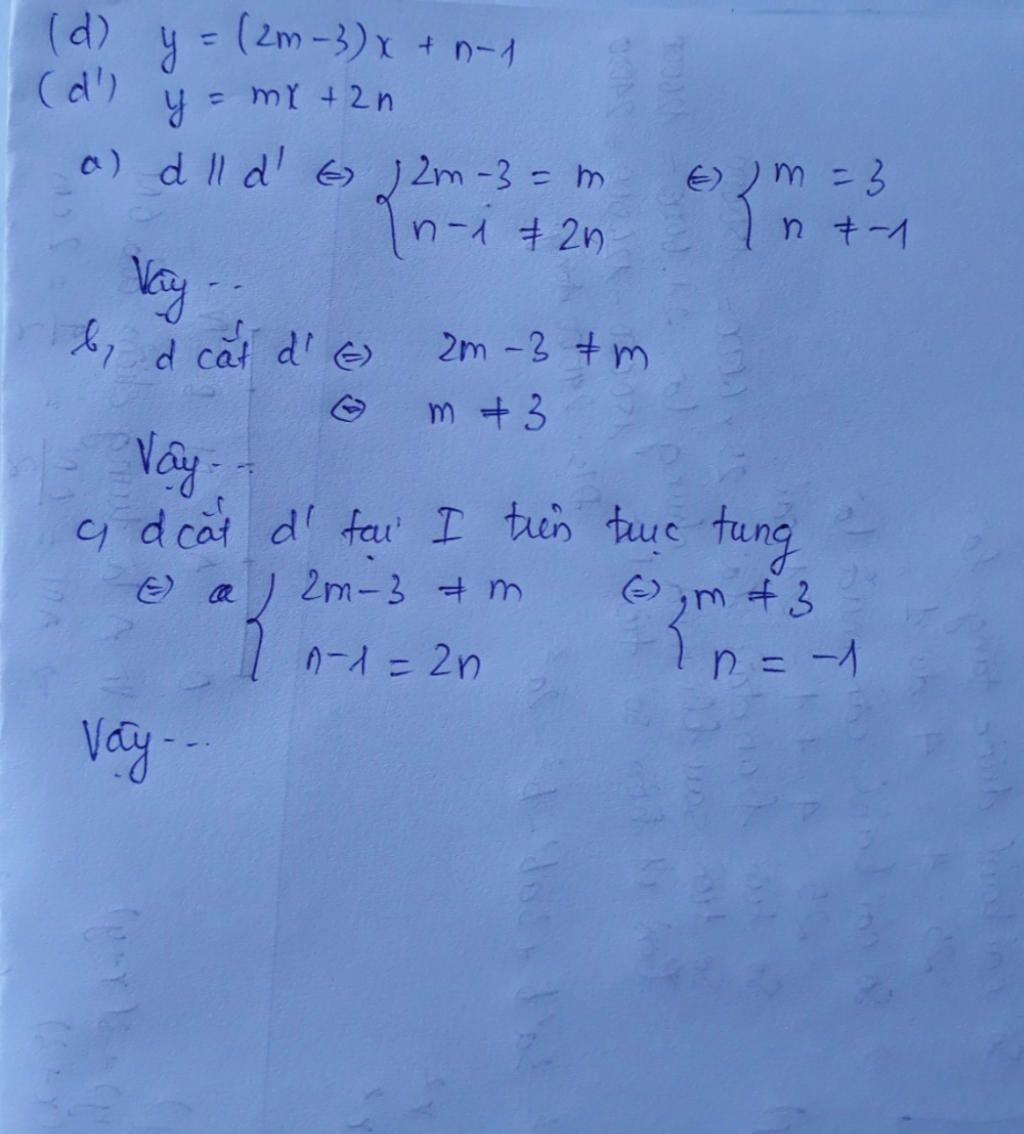 (d) y = (2m-3)x + n-1
(d') y = mx + 2n
a) d // d' ⇔ { 2m-3 = m ⇔ { m = 3
n-1 ≠ 2n n ≠ -1
Vậy ..
b, d cắt d' ⇔ 2m-3 ≠ m
⇔ m ≠ 3
Vậy ...
c, d cắt d' tại I trên trục tung
⇔ { 2m-3 ≠ m ⇔ { m ≠ 3
n-1 = 2n n = -1
Vậy ...